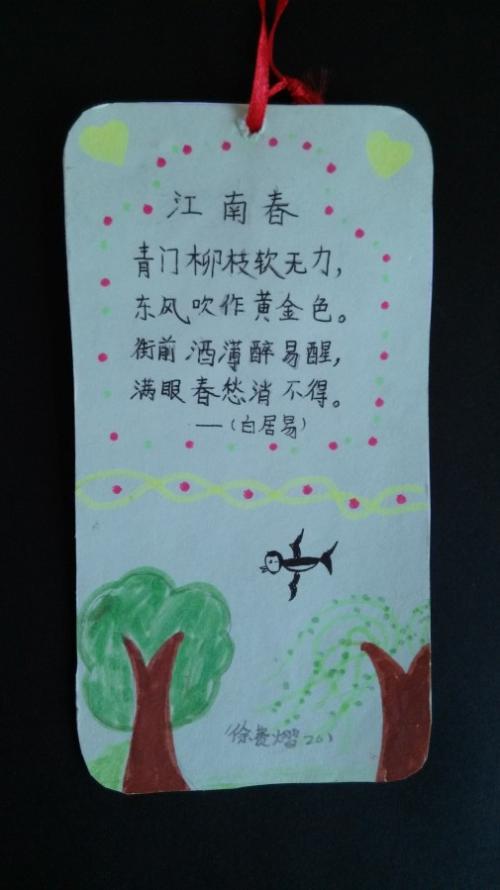 江南春
青门柳枝软无力，
东风吹作黄金色。
街前酒薄醉易醒，
满眼春愁消不得。
——（白居易）
徐 熠 201